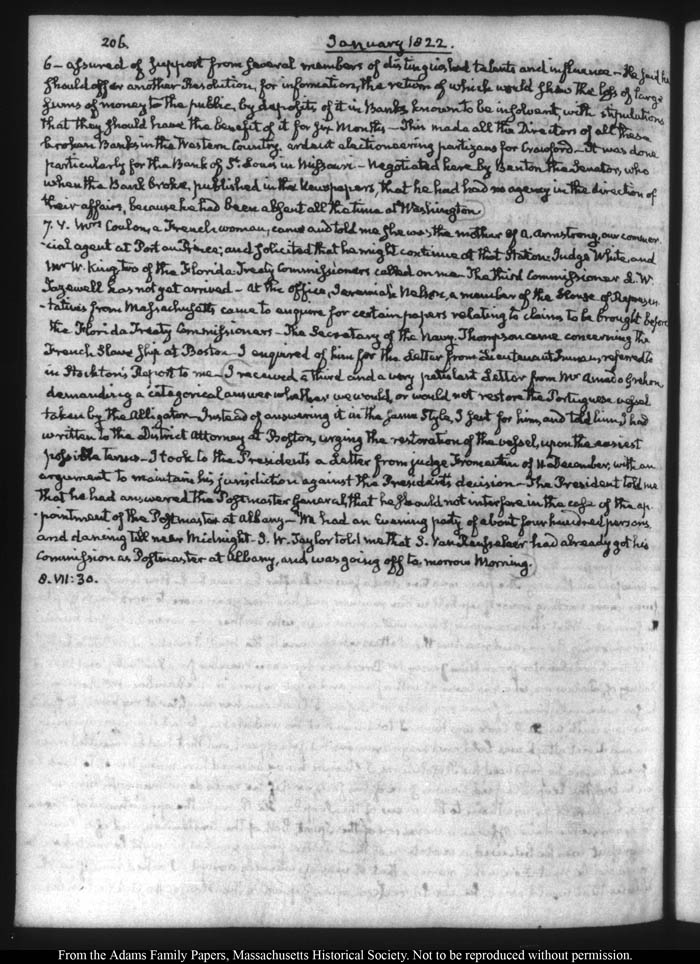 206.
January 1822.
6 — assured of support from several members of distinguished talents and influence — He said he
should offer another Resolution, for information, the return of which would shew the loss of large
sums of money to the public, by deposits of it in Banks known to be insolvent, with stipulations
that they should have the benefit of it for six Months — This made all the Directors of all these
broken Banks in the Western Country, ardent electioneering partizans for Crawford — It was done
particularly for the Bank of St. Louis in Missouri — Negotiated here by Benton the Senator, who
when the Bank broke, published in the Newspapers, that he had had no agency in the direction of
their affairs, because he had been absent all the time at Washington
7. V. Mrs Coulon, a French woman, came and told me she was the mother of A. Armstrong, our commer-
-cial agent at Port au Prince; and solicited that he might continue at that Station. Judge White, and
Mr W. King two of the Florida Treaty Commissioners called on me — The third Commissioner L. W.
Tazewell has not yet arrived — At the office, Jeremiah Nelson, a member of the House of Represen-
-tatives from Massachusetts came to enquire for certain papers relating to claims to be brought before
the Florida Treaty Commissioners — The Secretary of the Navy, Thompson came concerning the
French Slave Ship at Boston — I enquired of him for the Letter from Lieutenant referred to
in Stockton's Report to me — I received a third and a very petulant Letter from Mr Amado Grehon
demanding a categorical answer whether we would, or would not restore the Portuguese vessel
taken by the Alligator — Instead of answering it in the same style, I sent for him, and told him I had
written to the District Attorney at Boston, urging the restoration of the vessel, upon the easiest
possible terms — I took to the President's a Letter from judge Fromentin of December, with an
argument to maintain his jurisdiction against the President's decision — The President told me
that he had answered the Postmaster General, that he should not interfere in the case of the ap-
-pointment of the Postmaster at Albany — We had an Evening party of about four hundred persons
and dancing till near Midnight — J. W. Taylor told me that S. Van Rensselaer had already got his
Commission as Postmaster at Albany, and was going off to-morrow Morning.
8. VII: 30.
From the Adams Family Papers, Massachusetts Historical Society. Not to be reproduced without permission.